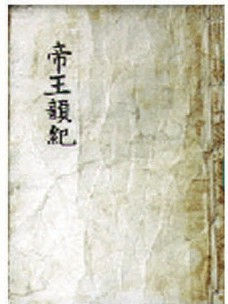 帝王韻紀